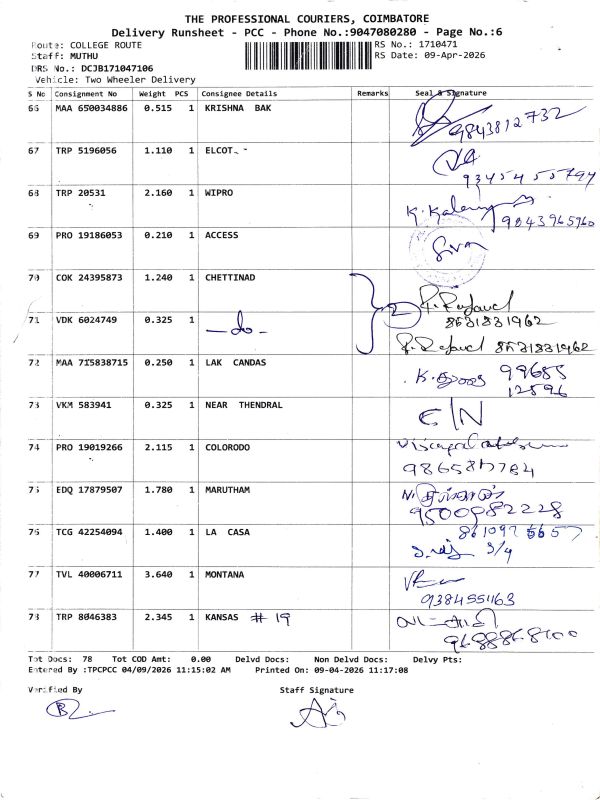 THE PROFESSIONAL COURIERS, COIMBATORE
Delivery Runsheet - PCC - Phone No.:9047080280 - Page No.:6
Route: COLLEGE ROUTE RS No.: 1710471
Staff: MUTHU RS Date: 09-Apr-2026
DRS No.: DCJB171047106
Vehicle: Two Wheeler Delivery
S No Consignment No Weight PCS Consignee Details Remarks Seal & Signature
66 MAA 650034886 0.515 1 KRISHNA BAK 9843812732
67 TRP 5196056 1.110 1 ELCOT 9345455794
68 TRP 20531 2.160 1 WIPRO 9843965960
69 PRO 19186053 0.210 1 ACCESS Siva
70 COK 24395873 1.240 1 CHETTINAD 2 8631831962
71 VDK 6024749 0.325 1 -do- 8631831962
72 MAA 715838715 0.250 1 LAK CANDAS 99655
12596
73 VKM 583941 0.325 1 NEAR THENDRAL E/N
74 PRO 19019266 2.115 1 COLORODO
75 EDQ 17879507 1.780 1 MARUTHAM 9500982228
76 TCG 42254094 1.400 1 LA CASA
3/4
77 TVL 40006711 3.640 1 MONTANA
9384551163
78 TRP 8046383 2.345 1 KANSAS # 19
Tot Docs: 78 Tot COD Amt: 0.00 Delvd Docs: Non Delvd Docs: Delvy Pts:
Entered By :TPCPCC 04/09/2026 11:15:02 AM Printed On: 09-04-2026 11:17:08
Verified By Staff Signature